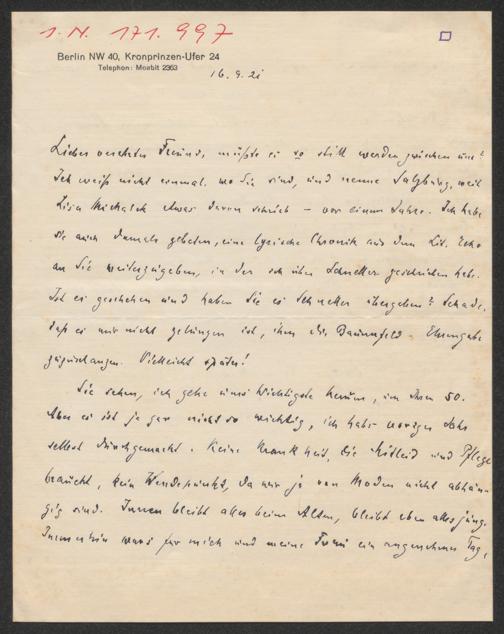 I. N. 171.997
Berlin NW 40, Kronprinzen-Ufer 24
Telephon: Moabit 2363
16. 9. 21
Lieber verehrter Freund, müßte es so still werden zwischen uns?
Ich weiß nicht einmal, wo Sie sind, und nenne Salzburg, weil
Lisa Michalek etwas davon schrieb – vor einem Jahre. Ich habe
sie auch damals gebeten, eine lyrische Chronik aus dem Lit. Echo
an Sie weiterzugeben, in der ich über Schneller geschrieben habe.
Ist es geschehen und haben Sie es Schneller übergeben? Schade,
daß es mir nicht gelungen ist, ihm die Bauernfeld-Ehrengabe
zuzuschanzen. Vielleicht später!
Sie sehen, ich gehe ums Wichtigste herum, um Ihren 50.
Aber es ist ja gar nicht so wichtig, ich hab's voriges Jahr
selbst durchgemacht. Keine Krankheit, die Mitleid und Pflege
braucht, kein Wendepunkt, da wir ja von Moden nicht abhän-
gig sind. Innen bleibt alles beim Alten, bleibt eben alles jung.
Immerhin wars für mich und meine Frau ein angenehmer Tag,